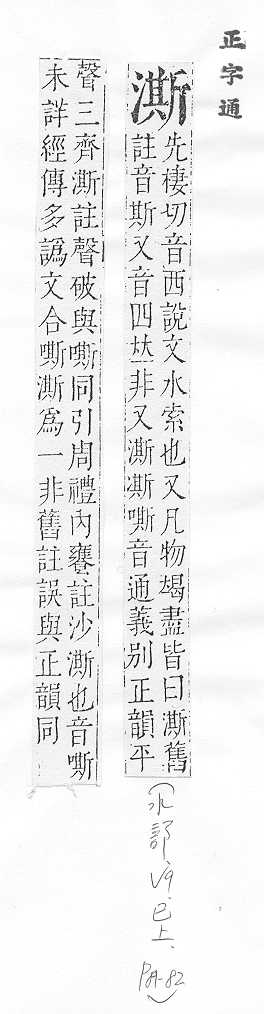 正字通
澌
先棲切音西說文水索也又凡物竭盡皆曰澌舊
註音斯又音四𠀤非又澌凘嘶音通義別正韻平
聲三齊澌註聲破與嘶同引周禮內饔註沙澌也音嘶
未詳經傳多譌文合嘶澌爲一非舊註誤與正韻同
(水部
巳上